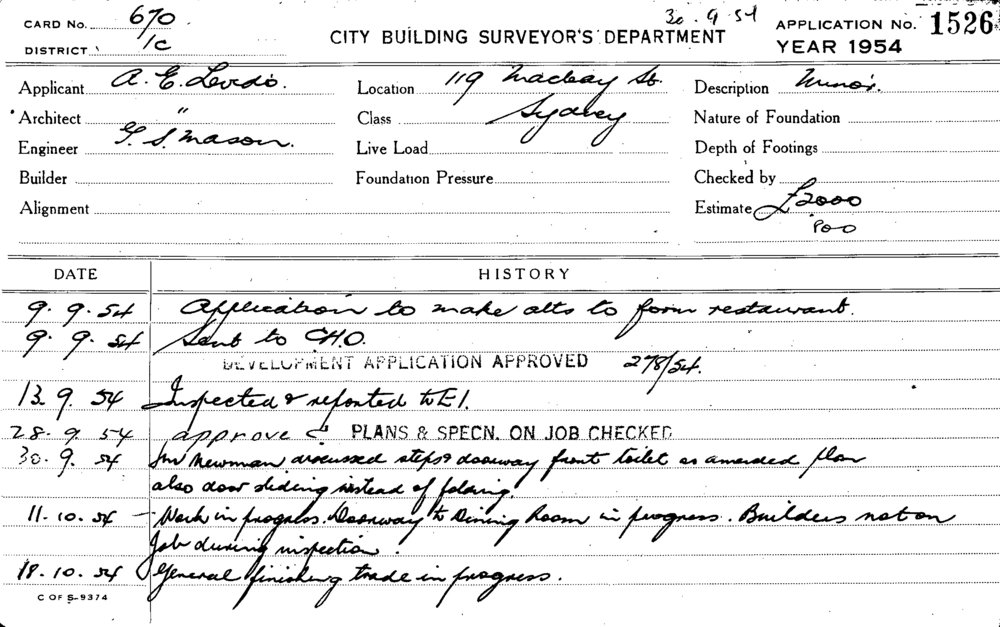 CARD No. 670
DISTRICT 1C
CITY BUILDING SURVEYOR'S DEPARTMENT
30.9.54
APPLICATION No. 1526
YEAR 1954
Applicant A. E. Levido. Location 119 Macleay St. Description Minor.
Architect " Class Sydney Nature of Foundation
Engineer G. S. Mason. Live Load Depth of Footings
Builder Foundation Pressure Checked by
Alignment Estimate £2000
DATE HISTORY
9.9.54 Application to make alts to form restaurant.
9.9.54 Sent to C.H.O.
DEVELOPMENT APPLICATION APPROVED 278/54.
13.9.54 Inspected & reported to E1.
28.9.54 approve PLANS & SPECN. ON JOB CHECKED
30.9.54 Newman discussed steps & doorway front toilet as amended plan
also door sliding instead of folding.
11.10.54 - Work in progress. Doorway to Dining Room in progress. Builders not on
Job during inspection.
18.10.54 General finishing trade in progress.
C OF S-9374